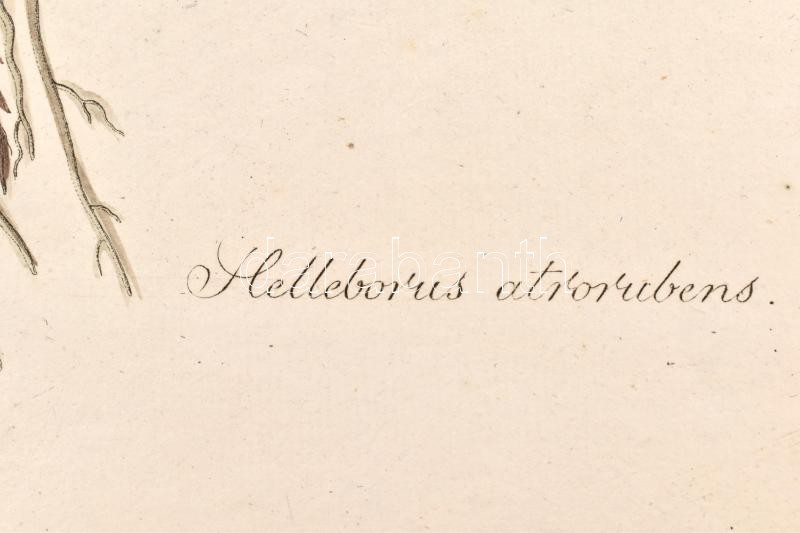 Helleborus atrorubens.
darabanth